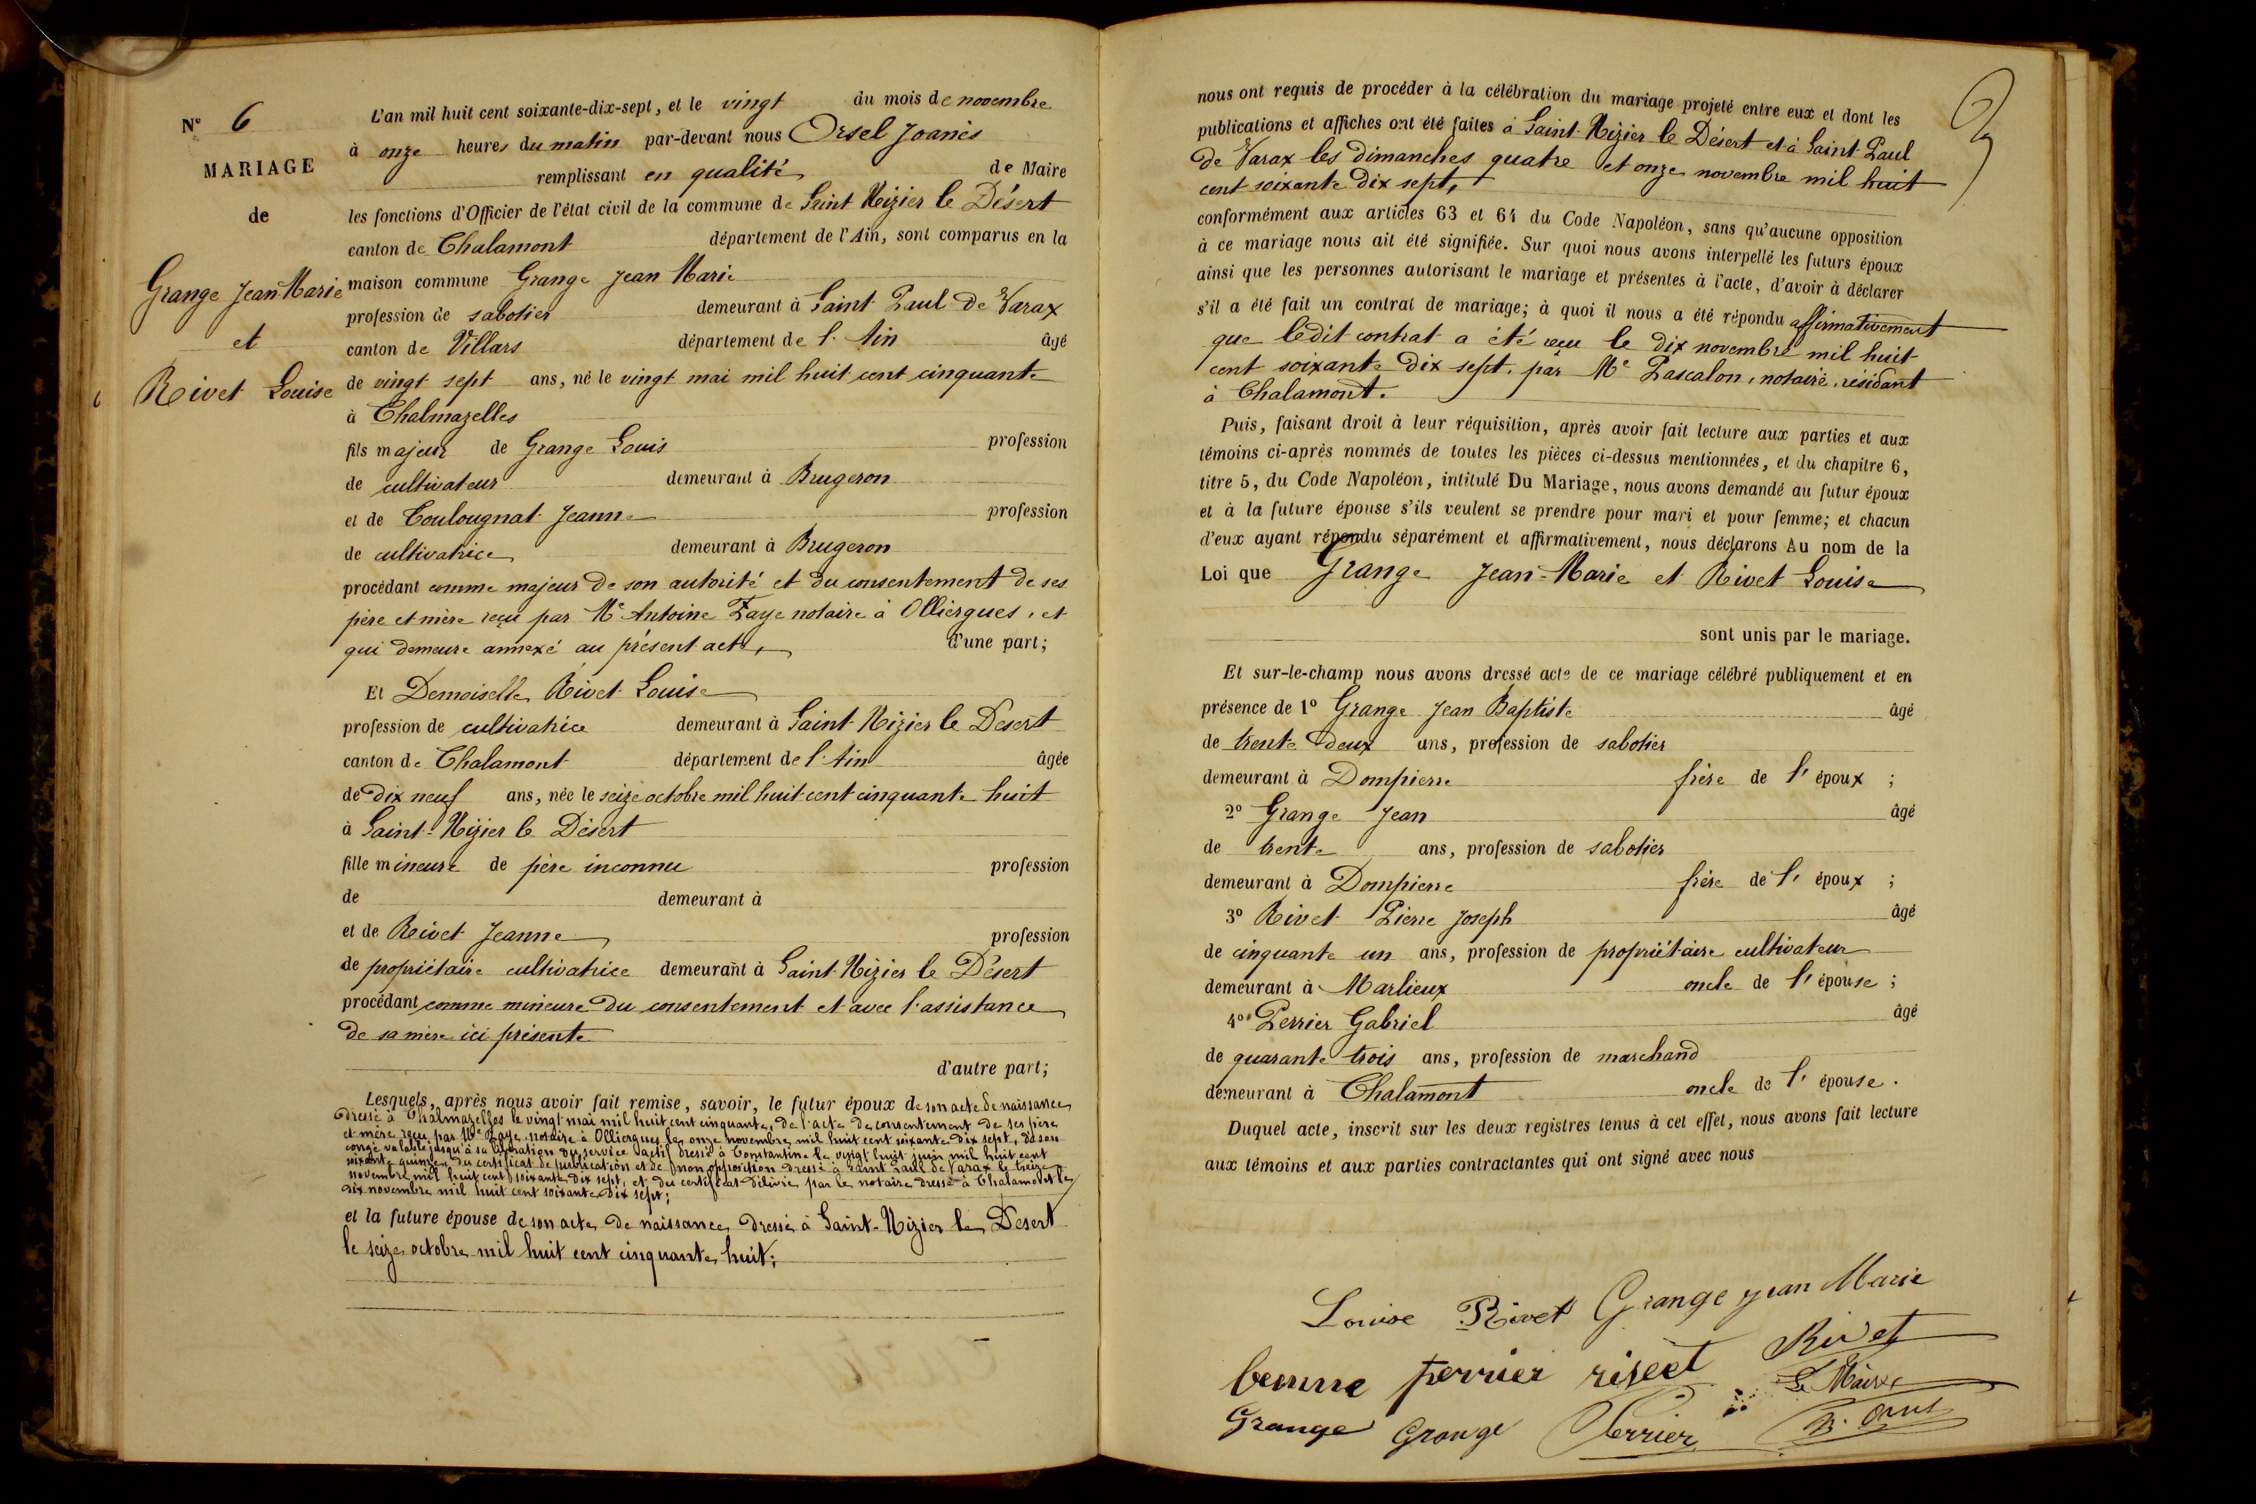 N° 6
MARIAGE
de
Grange Jean-Marie
et
Rivet Louise
L'an mil huit cent soixante-dix-sept, et le vingt du mois de novembre
à onze heures du matin par-devant nous Orsel Joanès
remplissant en qualité de Maire
les fonctions d'Officier de l'état civil de la commune de Saint Nizier le Désert
canton de Chalamont département de l'Ain, sont comparus en la
maison commune Grange Jean Marie
profession de sabotier demeurant à Saint Paul de Varax
canton de Villars département de l'Ain âgé
de vingt sept ans, né le vingt mai mil huit cent cinquante
à Chalmazelles
fils majeur de Grange Louis profession
de cultivateur demeurant à Brugeron
et de Coulougnat Jeanne profession
de cultivatrice demeurant à Brugeron
procédant comme majeur de son autorité et du consentement de ses
père et mère reçu par Me Antoine Faye notaire à Olliergues, et
qui demeure annexé au présent acte, d'une part;
Et Demoiselle Rivet Louise
profession de cultivatrice demeurant à Saint-Nizier le Désert
canton de Chalamont département de l'Ain âgée
de dix neuf ans, née le seize octobre mil huit cent cinquante huit
à Saint-Nizier le Désert
fille mineure de père inconnu profession
de demeurant à
et de Rivet Jeanne profession
de propriétaire cultivatrice demeurant à Saint-Nizier le Désert
procédant comme mineure du consentement et avec l'assistance
de sa mère ici présente
d'autre part;
Lesquels, après nous avoir fait remise, savoir, le futur époux de son acte de naissance
dressé à Chalmazelles le vingt mai mil huit cent cinquante, de l'acte de consentement de ses père
et mère reçu par Me Faye notaire à Olliergues le onze novembre mil huit cent soixante dix sept, de son
congé valable jusqu'à sa libération du service actif dressé à Constantine le vingt huit juin mil huit cent
soixante quinze, du certificat de publication et de non opposition dressé à Saint Paul de Varax le treize
novembre mil huit cent soixante dix sept, et du certificat délivré par le notaire dressé à Chalamont le
dix novembre mil huit cent soixante dix sept;
et la future épouse de son acte de naissance dressé à Saint-Nizier le Désert
le seize octobre mil huit cent cinquante huit;
nous ont requis de procéder à la célébration du mariage projeté entre eux et dont les
publications et affiches ont été faites à Saint-Nizier le Désert et à Saint Paul
de Varax les dimanches quatre et onze novembre mil huit
cent soixante dix sept,
conformément aux articles 63 et 64 du Code Napoléon, sans qu'aucune opposition
à ce mariage nous ait été signifiée. Sur quoi nous avons interpellé les futurs époux
ainsi que les personnes autorisant le mariage et présentes à l'acte, d'avoir à déclarer
s'il a été fait un contrat de mariage; à quoi il nous a été répondu affirmativement
que ledit contrat a été reçu le dix novembre mil huit
cent soixante dix sept, par Me Pascalon, notaire, résidant
à Chalamont.
Puis, faisant droit à leur réquisition, après avoir fait lecture aux parties et aux
témoins ci-après nommés de toutes les pièces ci-dessus mentionnées, et du chapitre 6,
titre 5, du Code Napoléon, intitulé Du Mariage, nous avons demandé au futur époux
et à la future épouse s'ils veulent se prendre pour mari et pour femme; et chacun
d'eux ayant répondu séparément et affirmativement, nous déclarons Au nom de la
Loi que Grange Jean-Marie et Rivet Louise
sont unis par le mariage.
Et sur-le-champ nous avons dressé acte de ce mariage célébré publiquement et en
présence de 1° Grange Jean Baptiste âgé
de trente deux ans, profession de sabotier
demeurant à Dompierre frère de l'époux ;
2° Grange Jean âgé
de trente ans, profession de sabotier
demeurant à Dompierre frère de l'époux ;
3° Rivet Pierre Joseph âgé
de cinquante un ans, profession de propriétaire cultivateur
demeurant à Marlieux oncle de l'épouse ;
4° Perrier Gabriel âgé
de quarante trois ans, profession de marchand
demeurant à Chalamont oncle de l'épouse.
Duquel acte, inscrit sur les deux registres tenus à cet effet, nous avons fait lecture
aux témoins et aux parties contractantes qui ont signé avec nous
Louise Rivet Grange jean Marie
femme perrier rivet Rivet
Le Maire
Grange Grange Perrier